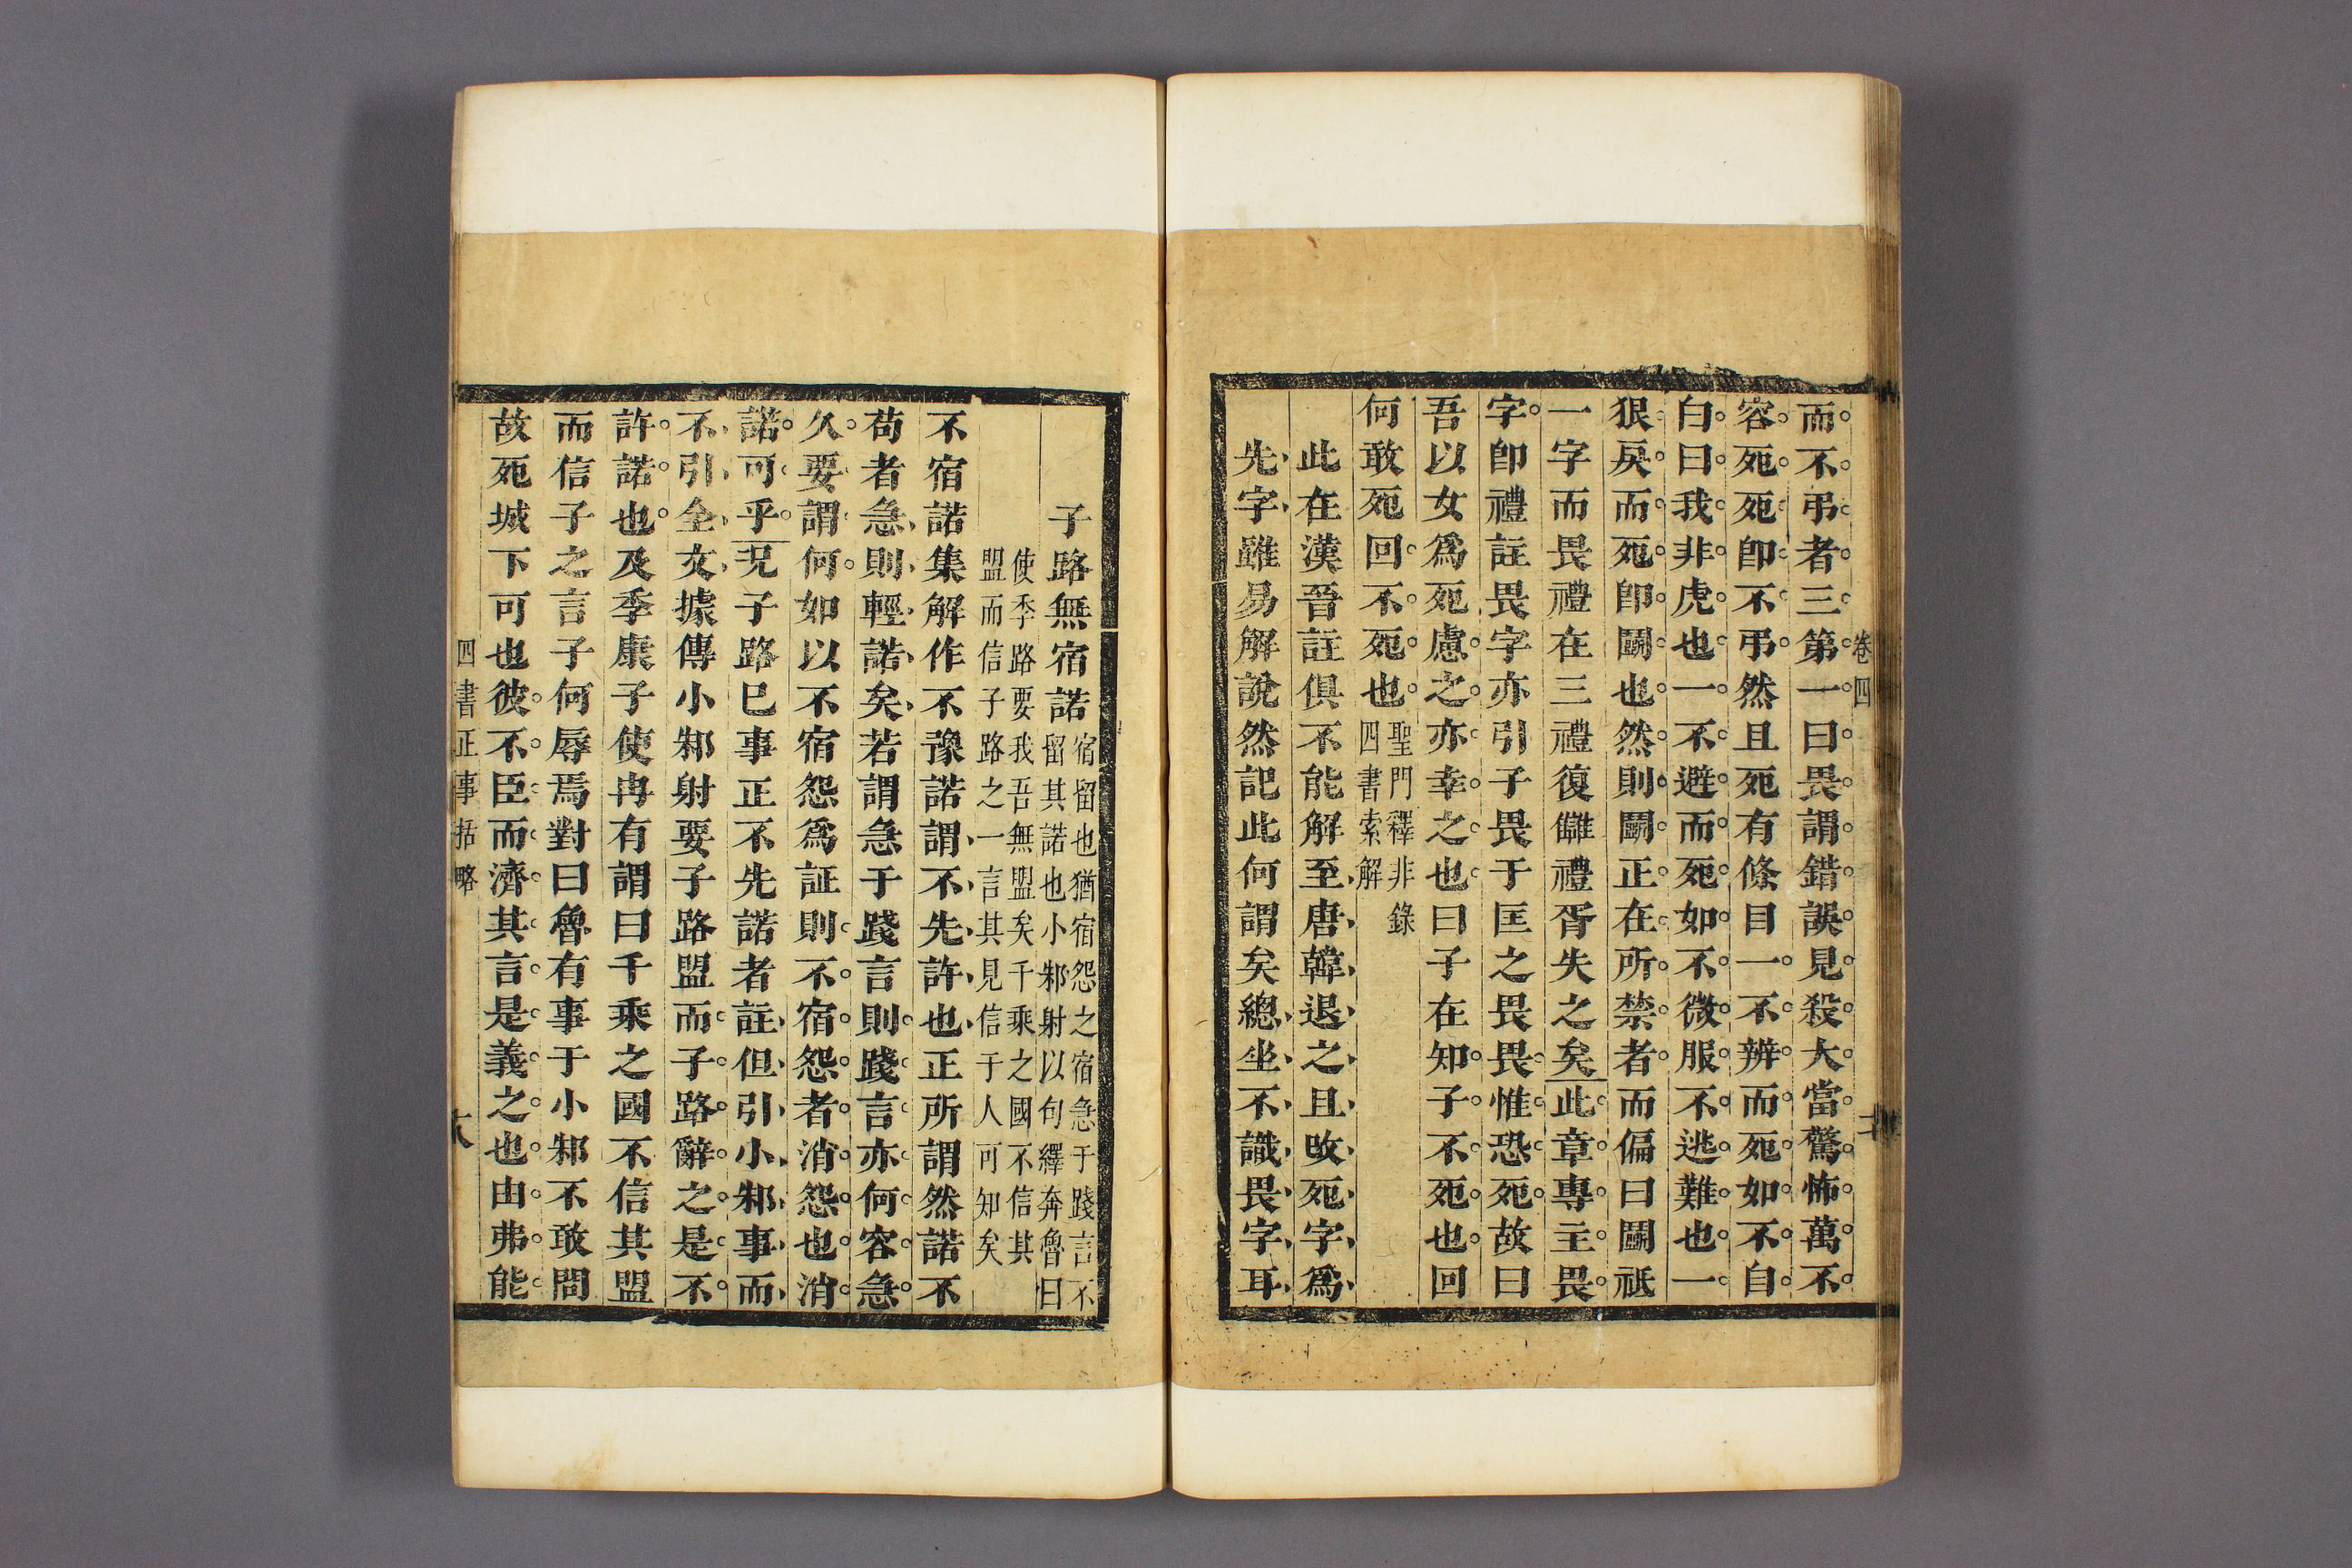 卷四
而不弔者三第一曰畏謂錯誤見殺大當驚怖萬不
容死死卽不弔然且死有條目一不辨而死如不自
白曰我非虎也一不避而死如不微服不逃難也一
狠戾而死卽鬭也然則鬭正在所禁者而偏曰鬭祇
一字而畏禮在三禮復讎禮胥失之矣此章專主畏
字卽禮註畏字亦引子畏于匡之畏畏惟恐死故曰
吾以女爲死慮之亦幸之也曰子在知子不死也回
何敢死回不死也
聖門釋非錄
四書索解
此在漢晉註俱不能解至唐韓退之且改死字爲
先字雖易解說然記此何謂矣總坐不識畏字耳
子路無宿諾
宿留也猶宿怨之宿急于踐言不
留其諾也小邾射以句繹奔魯曰
使季路要我吾無盟矣千乘之國不信其
盟而信子路之一言其見信于人可知矣
不宿諾集解作不豫諾謂不先許也正所謂然諾不
苟者急則輕諾矣若謂急于踐言則踐言亦何容急
久要謂何如以不宿怨爲証則不宿怨者消怨也消
諾可乎況子路已事正不先諾者註但引小邾事而
不引全文據傳小邾射要子路盟而子路辭之是不
許諾也及季康子使冉有謂曰千乘之國不信其盟
而信子之言子何辱焉對曰魯有事于小邾不敢問
故死城下可也彼不臣而濟其言是義之也由弗能
四書正事括略